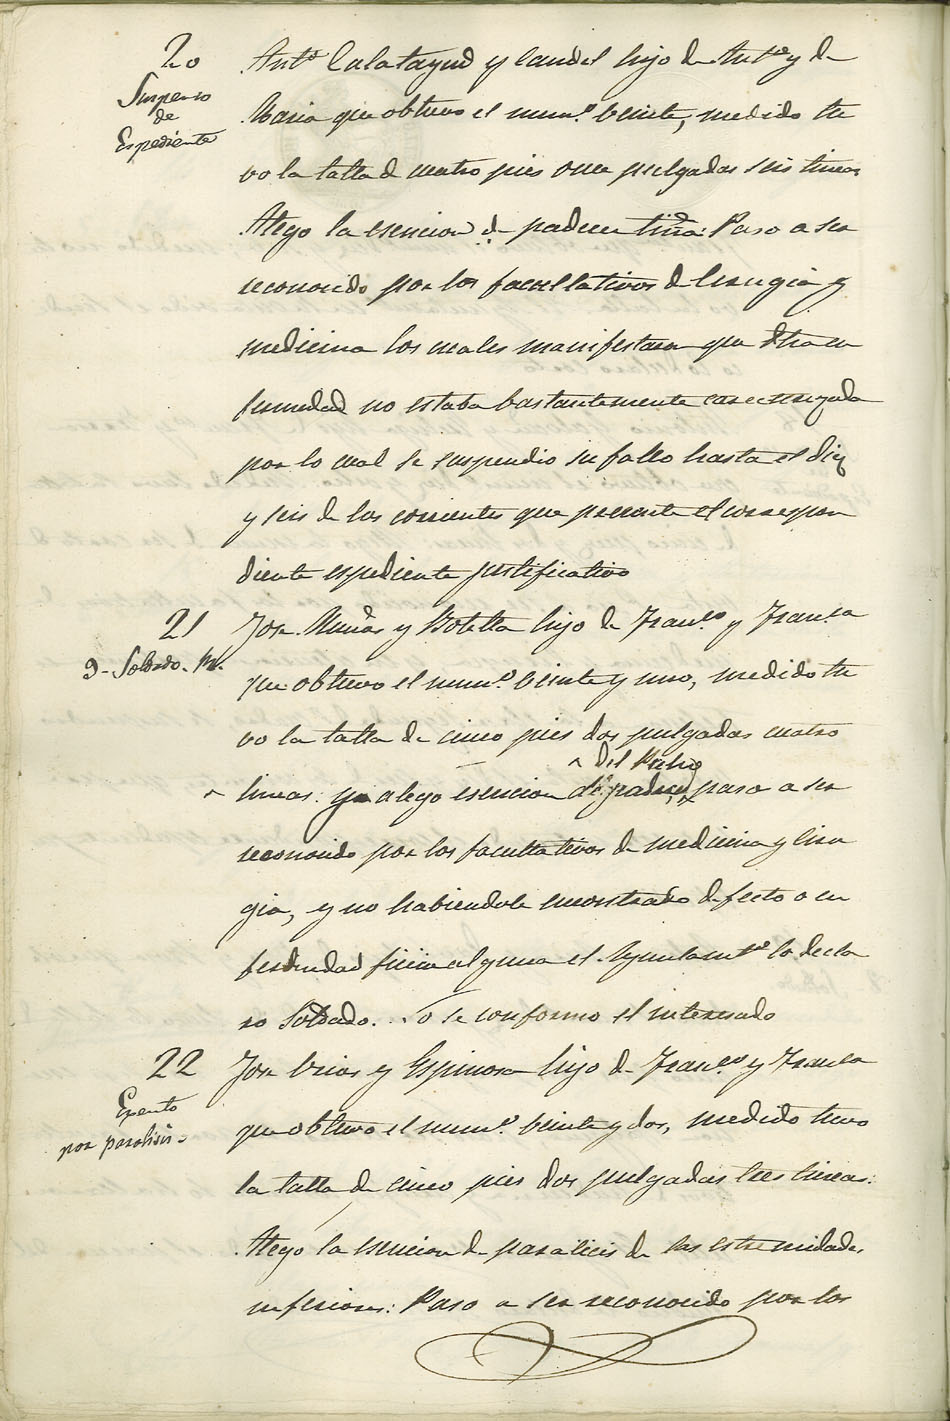 20
Suspenso
de
Espediente
Ant.º Calatayud y Candel hijo de Ant.º y de
Maria que obtuvo el num.º beinte, medido tu
vo la talla de cuatro pies once pulgadas seis lineas
Alego la esencion de padecer tiña: Paso a ser
reconocido por los facultativos de Cirugia y
medicina los cuales manifestaron que dha en
fermedad no estaba bastantemente caracterizada
por lo cual se suspendio su fallo hasta el diez
y seis de los corrientes que presente el correspon
diente espediente justificativo
21
9 - Soldado.
Jose Muñoz y Botella hijo de Fran.co y Fran.ca
que obtuvo el num.º beinte y uno, medido tu
vo la talla de cinco pies dos pulgadas cuatro
^ del Pecho
lineas: alego esencion de padecer paso a ser
reconocido por los facultativos de medicina y Ciru
gia, y no habiendole encontrado defecto o en
fermedad fisica alguna el Ayuntam.to lo decla
ro Soldado. se conformo el interesado
22
Exento
por paralisis
Jose y Espinosa hijo de Fran.co y Fran.ca
que obtuvo el num.º beinte y dos, medido tuvo
la talla de cinco pies dos pulgadas tres lineas:
Alego la esencion de paralicis de las estremidades
inferiores: Paso a ser reconocido por los